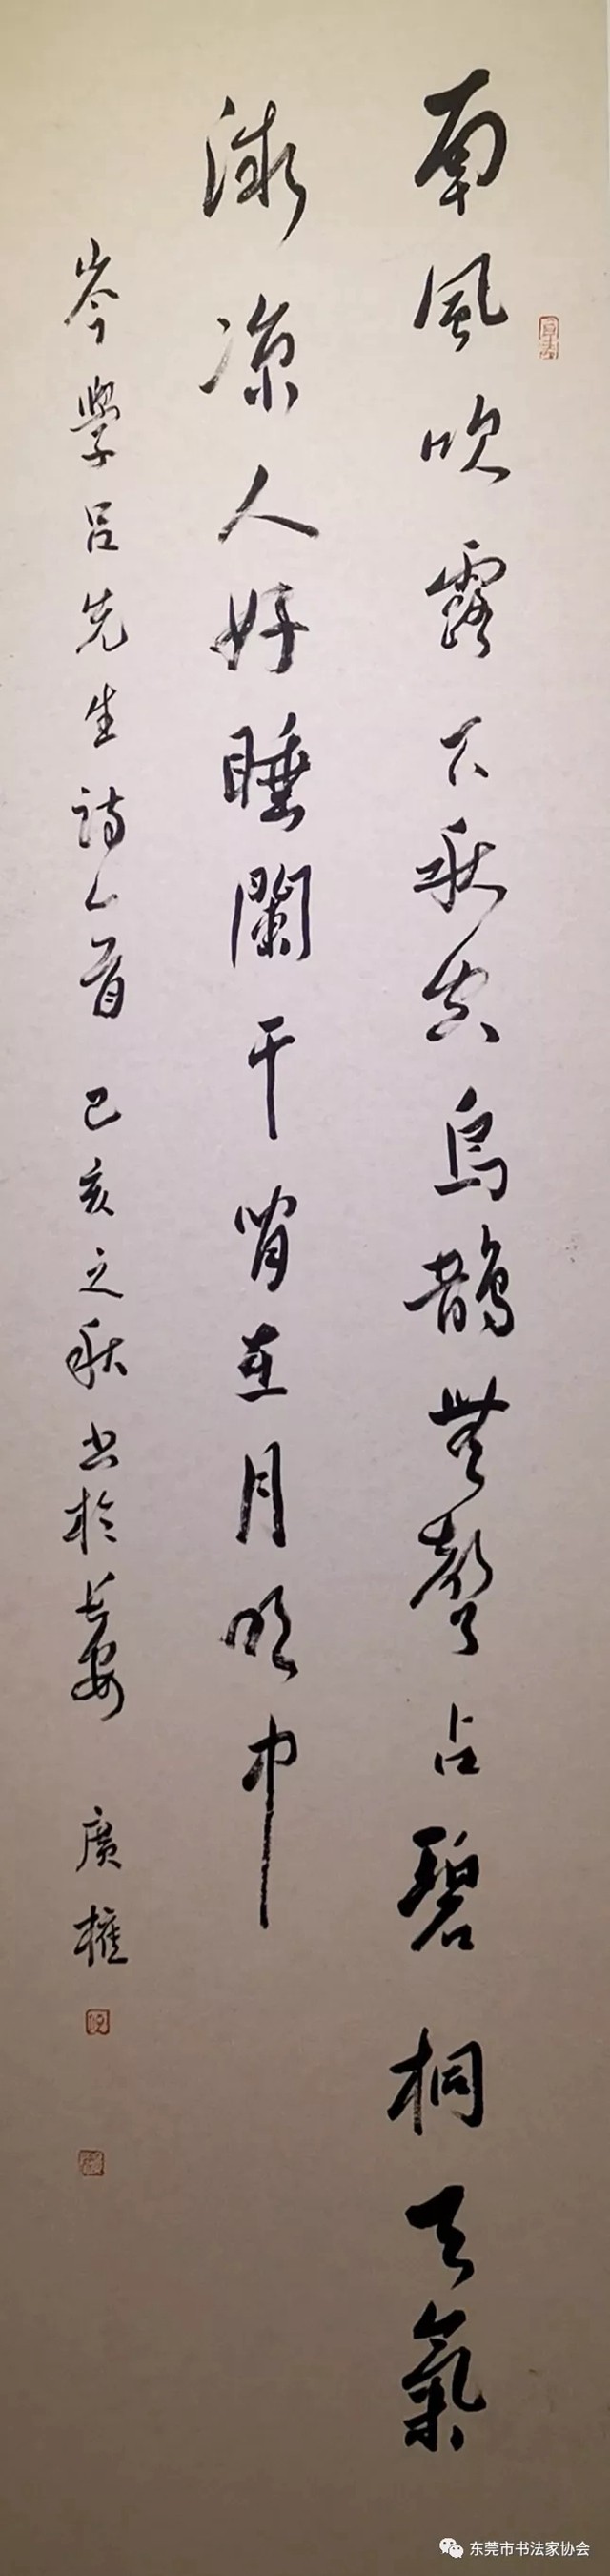 南風吹露下秋空烏鵲無聲占碧桐天氣
凉人好睡闌干閒在月明中
岑學呂先生詩乙首 己亥之秋書於長安 廣權
东莞市书法家协会